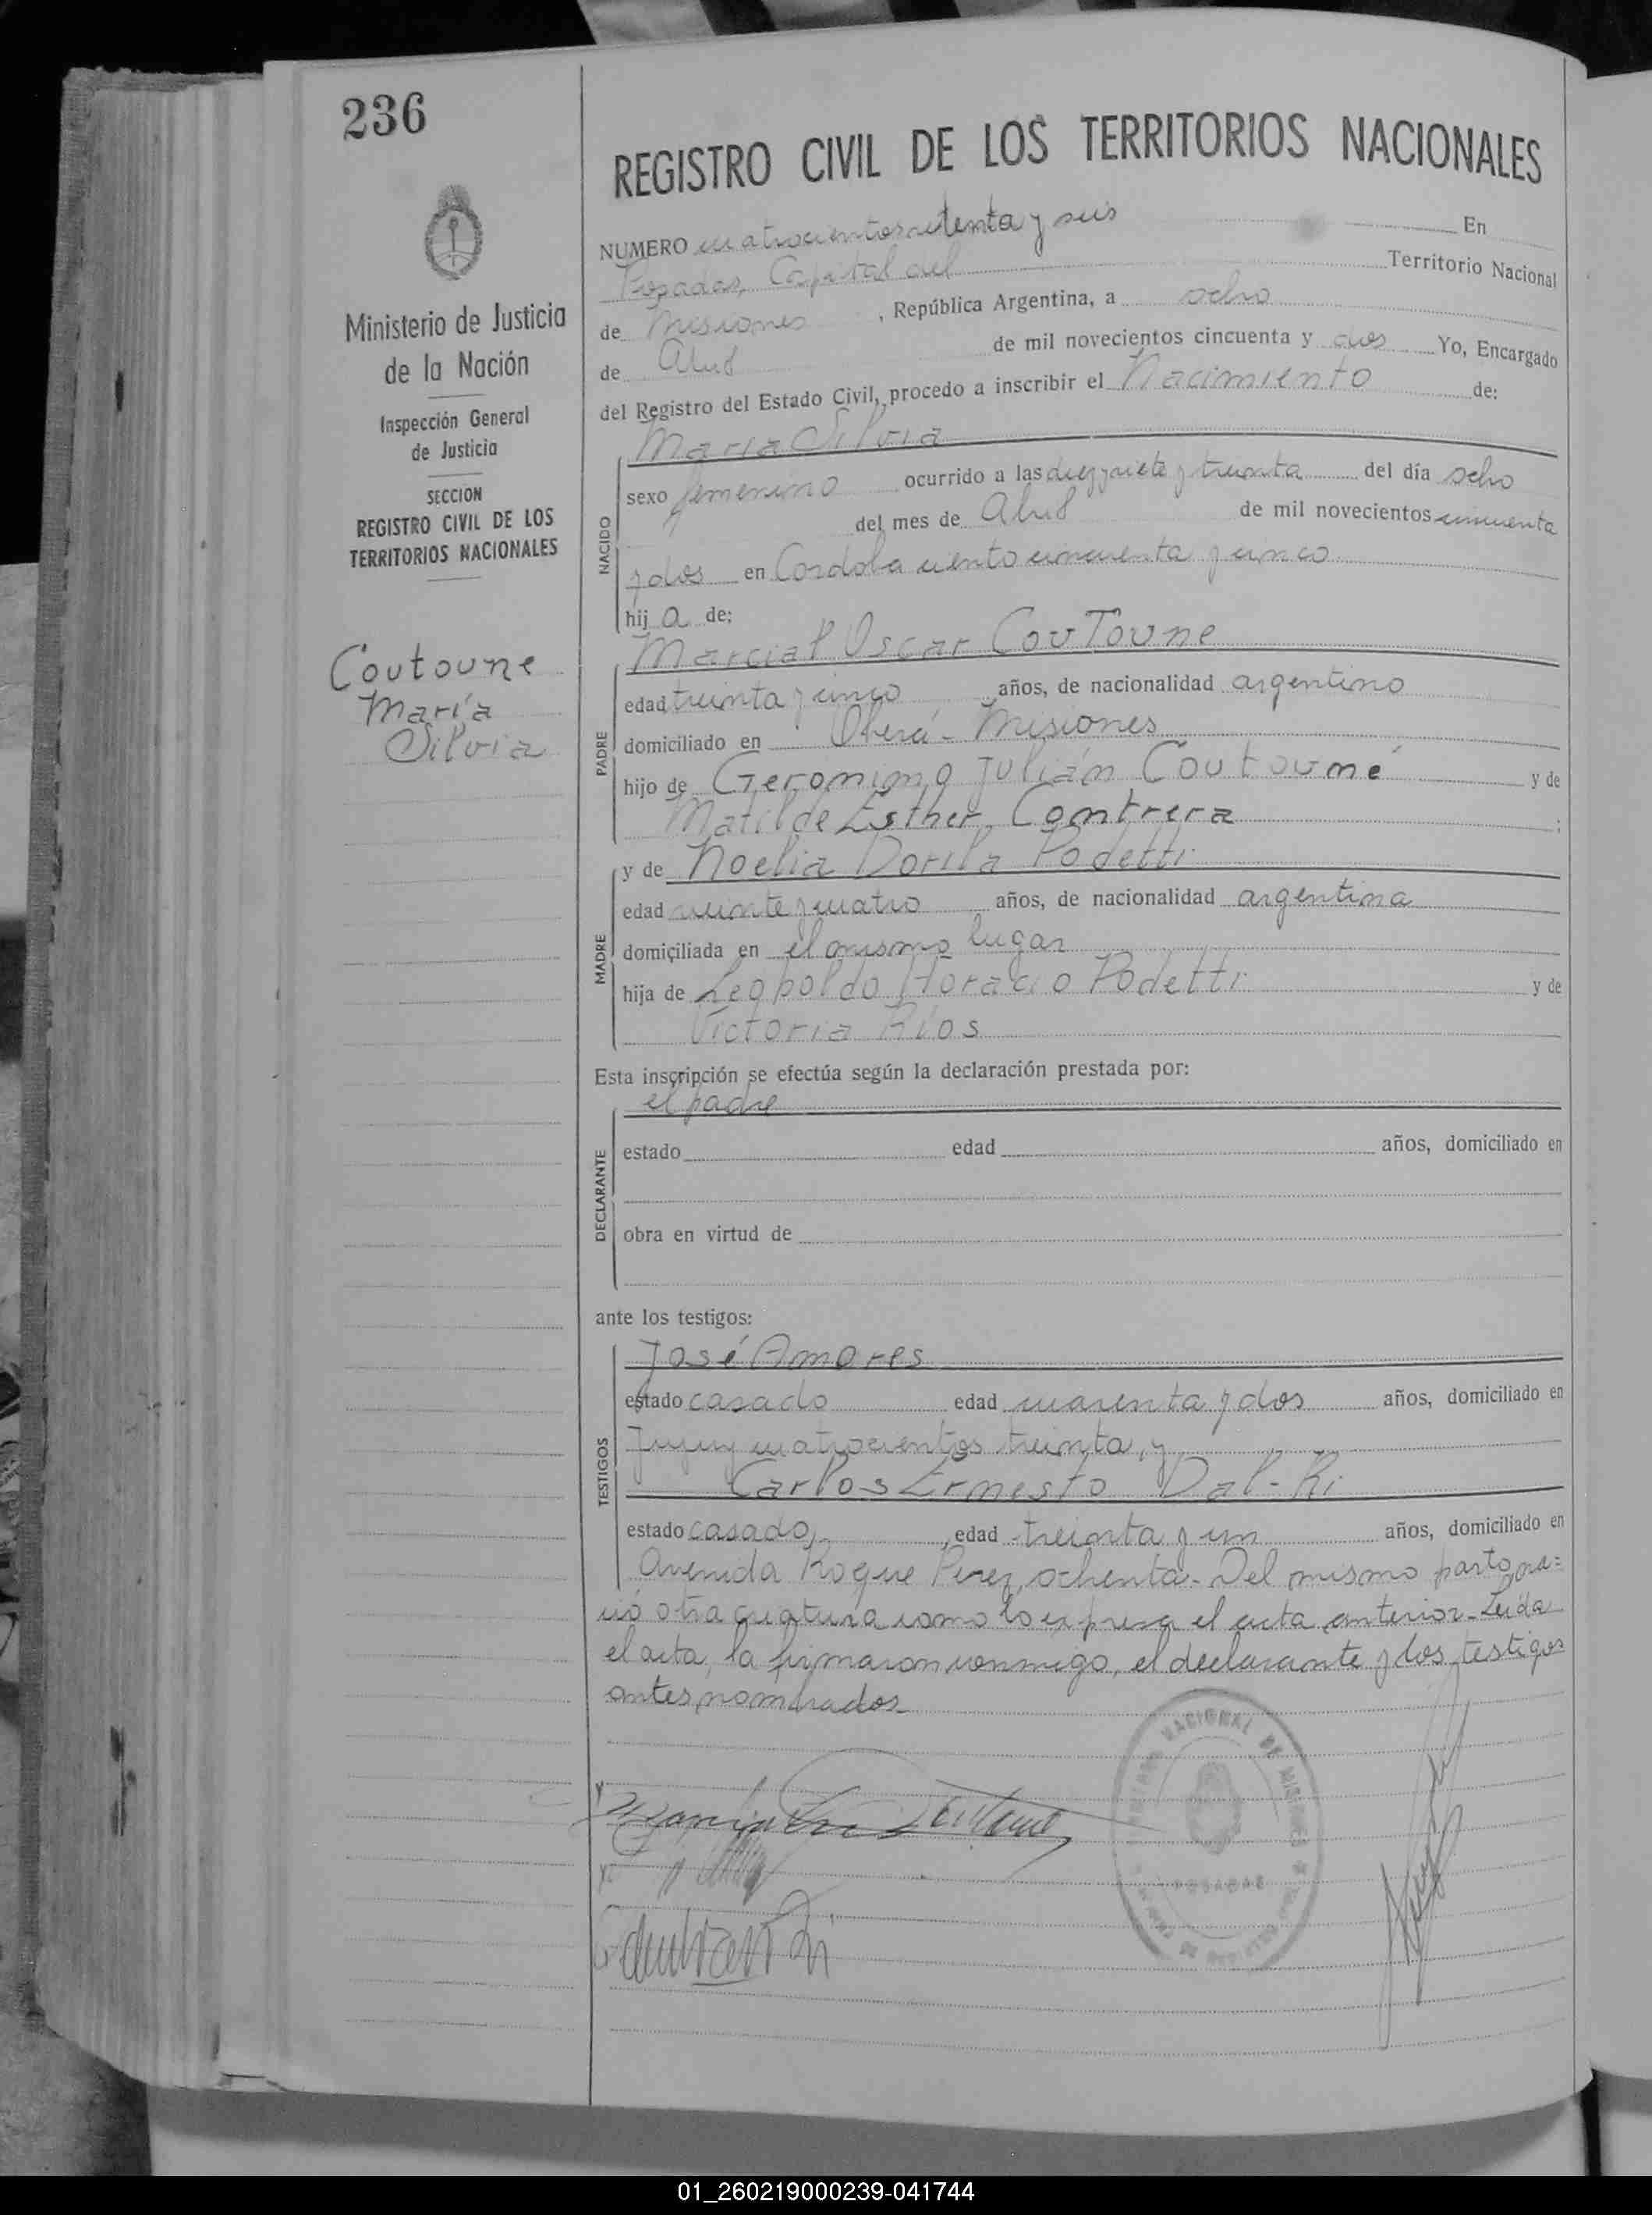 236
Ministerio de Justicia
de la Nación
Inspección General
de Justicia
SECCION
REGISTRO CIVIL DE LOS
TERRITORIOS NACIONALES
Coutoune
María
Silvia
REGISTRO CIVIL DE LOS TERRITORIOS NACIONALES
NUMERO cuatrocientos setenta y seis En
Posadas, Capital del Territorio Nacional
de Misiones, República Argentina, a ocho
de Abril de mil novecientos cincuenta y dos Yo, Encargado
del Registro del Estado Civil, procedo a inscribir el Nacimiento de:
María Silvia
NACIDO
sexo femenino ocurrido a las diez y siete y treinta del día ocho
del mes de Abril de mil novecientos cincuenta
y dos en Cordoba ciento cincuenta y cinco
hija de:
Marcial Oscar Coutoune
PADRE
edad treinta y cinco años, de nacionalidad argentino
domiciliado en Oberá - Misiones
hijo de Geronimo Julián Coutouné y de
Matilde Esther Contrera;
y de Noelia Dorila Podetti
MADRE
edad veinte y cuatro años, de nacionalidad argentina
domiciliada en el mismo lugar
hija de Leopoldo Horacio Podetti y de
Victoria Ríos
Esta inscripción se efectúa según la declaración prestada por:
el padre
DECLARANTE
estado edad años, domiciliado en
obra en virtud de
ante los testigos:
José Amores
TESTIGOS
estado casado edad cuarenta y dos años, domiciliado en
Jujuy cuatrocientos treinta, y
Carlos Ernesto Dal-Ri
estado casado, edad treinta y un años, domiciliado en
Avenida Roque Perez, ochenta - Del mismo parto na=
ció otra criatura como lo expresa el acta anterior - Leída
el acta, la firmaron conmigo, el declarante y los testigos
antes nombrados -
NACIONAL DE MISIONES
POSADAS
01_260219000239-041744